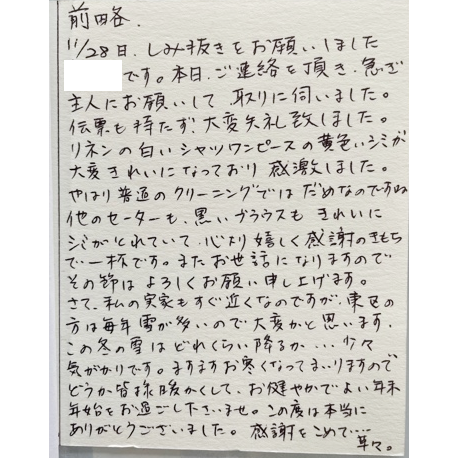 前略.
11/28日、しみ抜きをお願いしました
です。本日、ご連絡を頂き、急ぎ
主人にお願いして 取りに伺いました。
伝票も持たず、大変失礼致しました。
リネンの白いシャツワンピースの黄色いシミが
大変きれいになっており 感激しました。
やはり普通のクリーニングではだめなのですね
他のセーターも、黒いブラウスも きれいに
シミがとれていて、心より嬉しく感謝のきもち
で一杯です。またお世話になりますので
その節は よろしくお願い申し上げます。
さて、私の実家もすぐ近くなのですが、東区の
方は毎年雪が多いので大変かと思います.
この冬の雪は どれくらい降るか…少々
気がかりです。ますますお寒くなってまいりますので
どうか皆様暖かくして、お健やかでよい年末
年始をお過ごし下さいませ。この度は本当に
ありがとうございました。感謝をこめて……
草々。